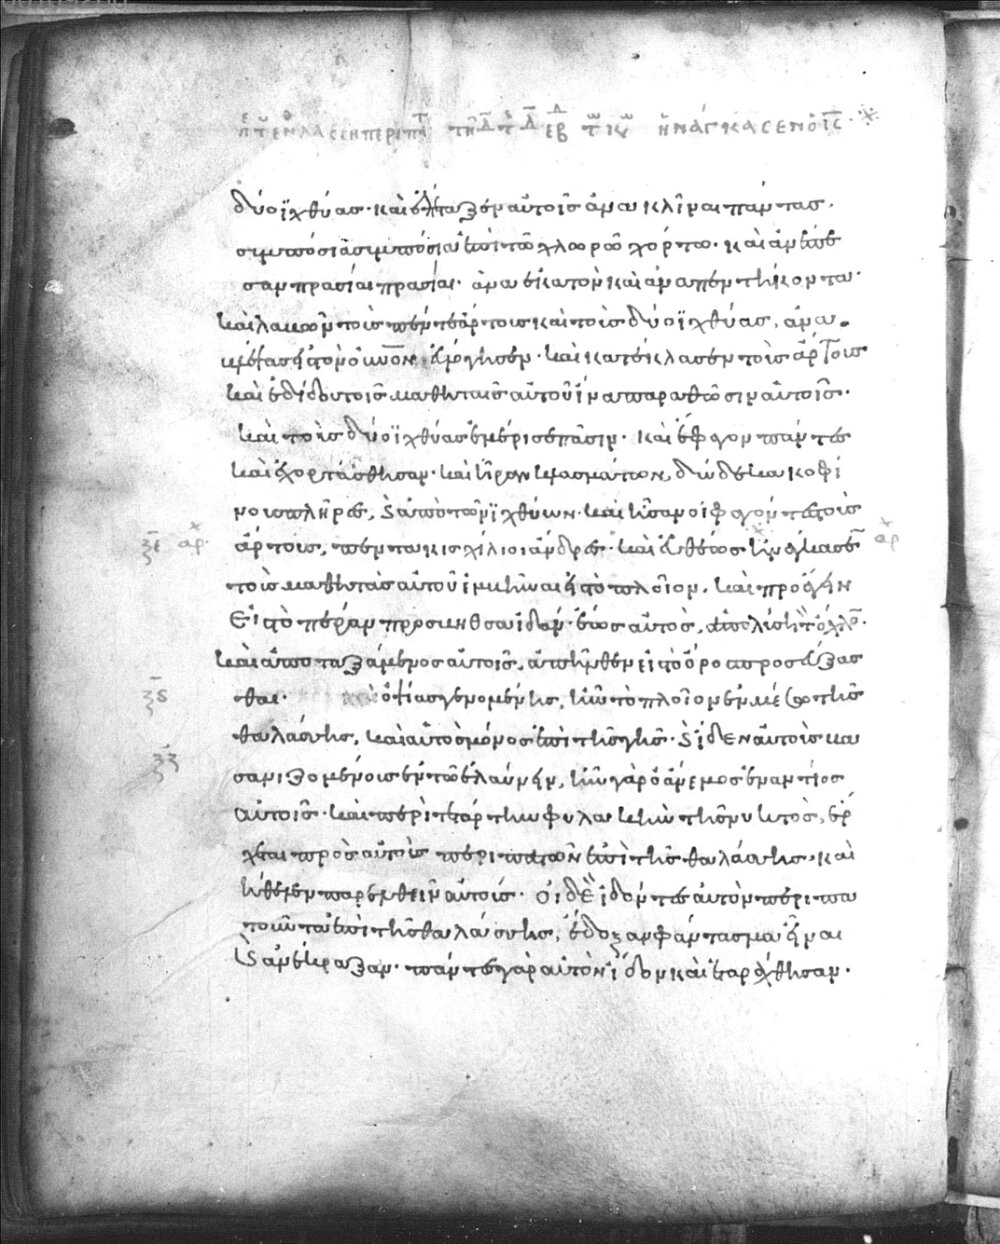 δύο ἰχθύας· καὶ ἐπέταξεν αὐτοῖς ἀνακλῖναι πάντας,
συμπόσια συμπόσια ἐπὶ τῶ χλωρῶ χόρτω· καὶ ἀνέπε
σαν πρασιαὶ πρασιαί· ἀνὰ ἑκατὸν καὶ ἀνὰ πεντήκοντα·
καὶ λαβὼν τοὺς πέντε ἄρτους καὶ τοὺς δύο ἰχθύας, ἀνα
βλέψας εἰς τὸν οὐνον εὐλόγησεν· καὶ κατέκλασεν τοὺς ἄρτους
καὶ ἐδίδου τοῖς μαθηταῖς αὐτοῦ ἵνα παραθῶσιν αὐτοῖς·
καὶ τοὺς δύο ἰχθύας ἐμέρισε πᾶσιν· καὶ ἔφαγον πάντες
καὶ ἐχορτάσθησαν· καὶ ἦραν κλασμάτων, δώδεκα κοφί
νους πλήρεις, κ ἀπὸ τῶν ἰχθύων· καὶ ἦσαν οἱ φαγόντες τοὺς
ξε ἀρ· ἄρτους, πεντακισχίλιοι ἄνδρες· καὶ εὐθέως ἠνάγκασεν ἀρ
τοὺς μαθητὰς αὐτοῦ ἐμβῆναι εἰς τὸ πλοῖον, καὶ προάγειν
εἰς τὸ πέραν πρὸς βηθσαϊδάν· ἕως αὐτὸς, ἀπολύσῃ τὸν ὄχλον·
καὶ ἀποταξάμενος αὐτοῖς, ἀπῆλθεν εἰς τὸ ὄρος προσεύξας
ξς θαι· καὶ ὀψίας γενομένης, ἦν τὸ πλοῖον ἐν μέσω τῆς
θαλάσσης, καὶ αὐτὸς μόνος ἐπὶ τῆς γῆς· κ ἶδεν αὐτοὺς βα
ξζ σανιζομένους ἐν τῶ ἐλαύνειν, ἦν γὰρ ὁ ἄνεμος ἐναντίος
αὐτοῖς· καὶ περὶ τετάρτην φυλακὴν τῆς νυκτὸς, ἔρ
χεται πρὸς αὐτοὺς περιπατῶν ἐπὶ τῆς θαλάσσης· καὶ
ἤθελεν παρελθεῖν αὐτούς· οἱ δὲ ἰδόντες αὐτὸν περιπα
τοῦντα ἐπὶ τῆς θαλάσσης, ἔδοξαν φάντασμα εἶναι
κ ἀνέκραξαν· πάντες γὰρ αὐτὸν ἶδον καὶ ἐταράχθησαν·